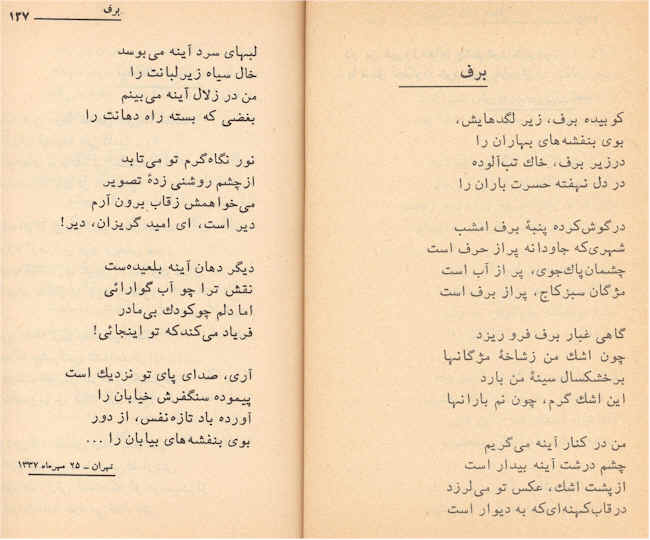 برف
کوبیده برف، زیر لگدهایش،
بوی بنفشه‌های بهاران را
درزیر برف، خاك تب‌آلوده
در دل نهفته حسرت باران را
درگوش‌کرده پنبهٔ برف امشب
شهری‌که جاودانه پراز حرف است
چشمان‌پاك‌جوی، پر از آب است
مژگان سبزکاج، پراز برف است
گاهی غبار برف فرو ریزد
چون اشك من زشاخهٔ مژگانها
برخشکسال سینهٔ من بارد
این اشك گرم، چون نم بارانها
من در کنار آینه می‌گریم
چشم درشت آینه بیدار است
ازپشت اشك، عکس تو می‌لرزد
درقاب‌کهنه‌ای‌که به دیوار است
برف ۱۳۷
لبهای سرد آینه می‌بوسد
خال سیاه زیرلبانت را
من در زلال آینه می‌بینم
بغضی که بسته راه دهانت را
نور نگاه‌گرم تو می‌تابد
ازچشم روشنی زدهٔ تصویر
می‌خواهمش زقاب برون آرم
دیر است، ای امید گریزان، دیر!
دیگر دهان آینه بلعیده‌ست
نقش ترا چو آب گوارائی
اما دلم چوکودك بی‌مادر
فریاد می‌کندکه تو اینجائی!
آری، صدای پای تو نزدیك است
پیموده سنگفرش خیابان را
آورده باد تازه‌نفس، از دور
بوی بنفشه‌های بیابان را ...
تهران ـ ۲۵ مهرماه ۱۳۳۷